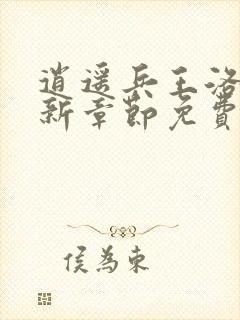 逍遥兵王洛
新章節免費
侯為東